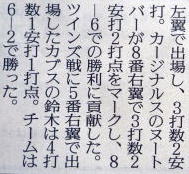 左翼で出場し、3打数2安
打。カージナルスのヌート
バーが8番右翼で3打数2
安打2点をマークし、8
―6での勝利に貢献した。
ツインズ戦に5番右翼で出
場したカブスの鈴木は4打
数1安打1打点。チームは
6―2で勝った。